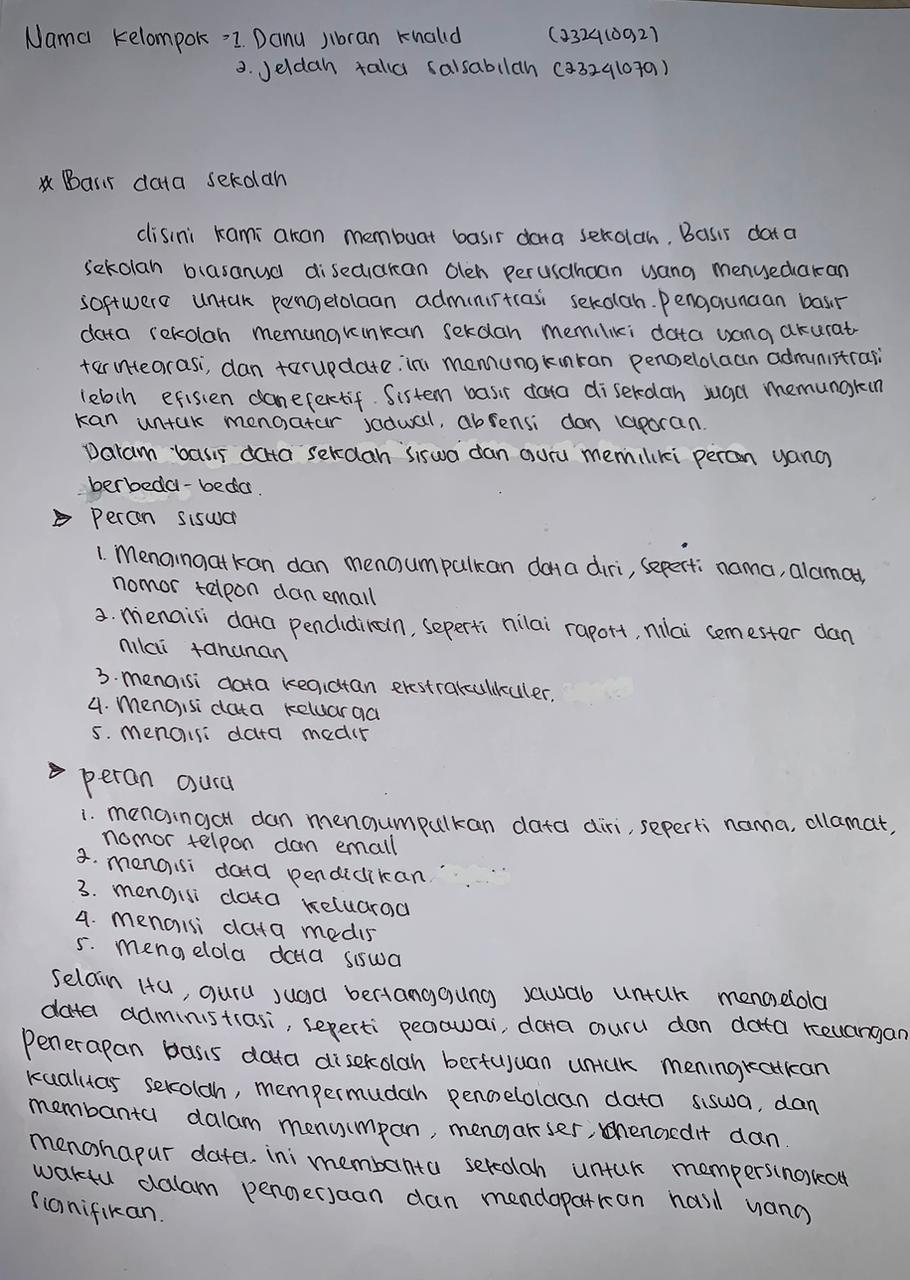 Nama kelompok = 1. Danu Jibran Khalid (23241092)
2. Jeldah talia salsabilah (23241079)
* Basis data sekolah
disini kami akan membuat basis data sekolah. Basis data
sekolah biasanya disediakan oleh perusahaan yang menyediakan
softwere untuk pengelolaan administrasi sekolah. penggunaan basis
data sekolah memungkinkan sekolah memiliki data yang akurat
terintegrasi, dan terupdate. ini memungkinkan pengelolaan administrasi
lebih efisien dan efektif. Sistem basis data di sekolah juga memungkin
kan untuk mengatur jadwal, absensi dan laporan.
Dalam basis data sekolah siswa dan guru memiliki peran yang
berbeda-beda.
➤ Peran siswa
1. Mengingatkan dan mengumpulkan data diri, seperti nama, alamat,
nomor telpon dan email
2. mengisi data pendidikan, seperti nilai raport, nilai semester dan
nilai tahunan
3. mengisi data kegiatan ekstrakulikuler.
4. Mengisi data keluarga
5. mengisi data medis
➤ peran guru
1. mengingat dan mengumpulkan data diri, seperti nama, alamat,
nomor telpon dan email
2. mengisi data pendidikan.
3. mengisi data keluarga
4. mengisi data medis
5. mengelola data siswa
selain itu, guru juga bertanggung jawab untuk mengelola
data administrasi, seperti pegawai, data guru dan data keuangan
Penerapan basis data disekolah bertujuan untuk meningkatkan
kualitas sekolah, mempermudah pengelolaan data siswa, dan
membantu dalam menyimpan, mengakses, mengedit dan
menghapus data. ini membantu sekolah untuk mempersingkat
waktu dalam pengerjaan dan mendapatkan hasil yang
signifikan.